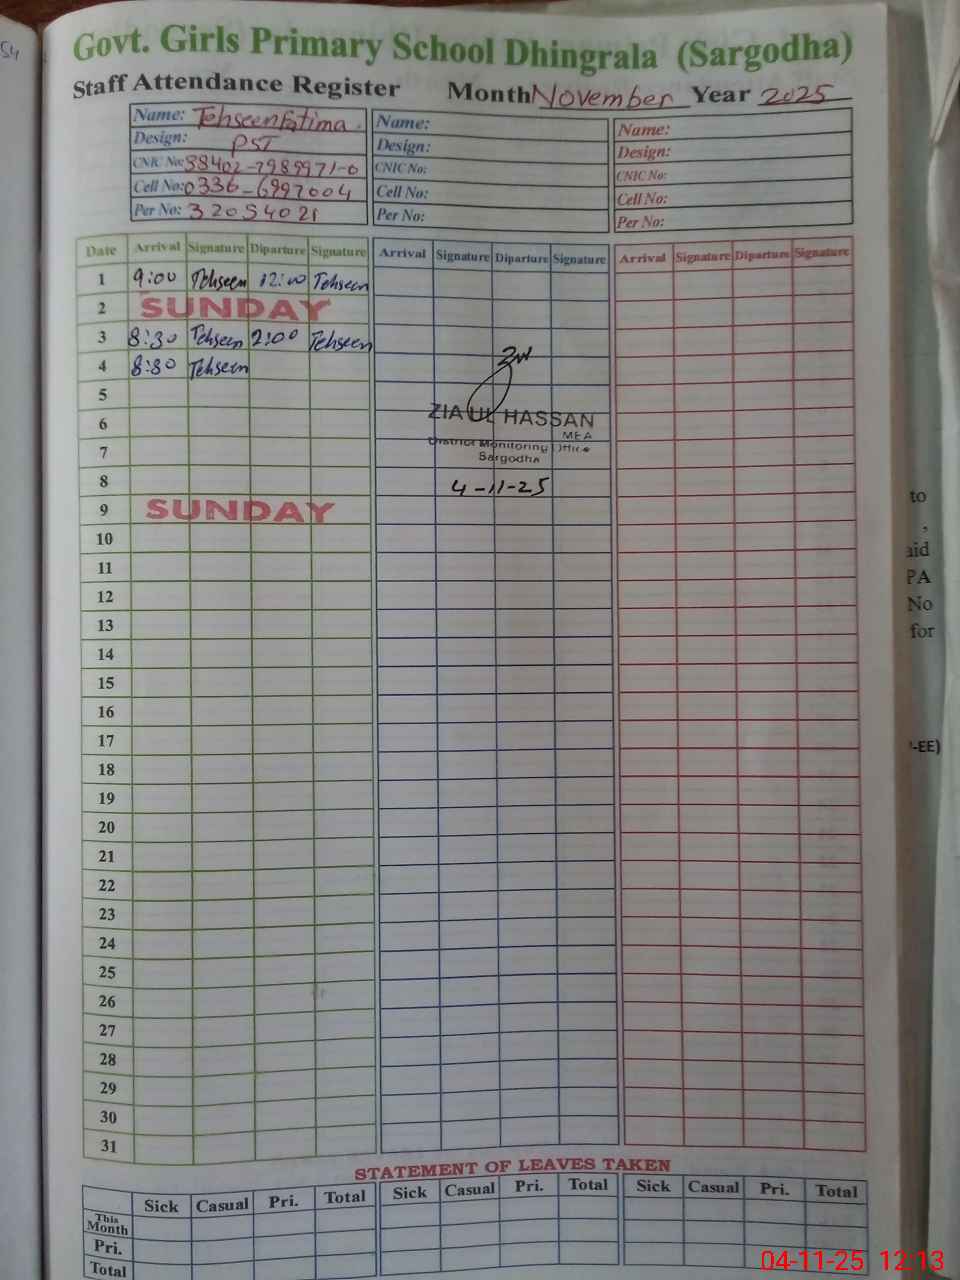 54
Govt. Girls Primary School Dhingrala (Sargodha)
Staff Attendance Register Month November Year 2025
Name: Tehseen Fatima. Name: Name:
Design: PST Design: Design:
CNIC No: 38402-7989971-0 CNIC No: CNIC No:
Cell No: 0336-6997004 Cell No: Cell No:
Per No: 32054021 Per No: Per No:
Date Arrival Signature Diparture Signature Arrival Signature Diparture Signature Arrival Signature Diparture Signature
1 9:00 Tehseen 12:00 Tehseen
2 SUNDAY
3 8:30 Tehseen 2:00 Tehseen
4 8:30 Tehseen
5
6 ZIA UL HASSAN
MEA
7 District Monitoring Office
Sargodha
8 4-11-25
9 SUNDAY
10
11
12
13
14
15
16
17
18
19
20
21
22
23
24
25
26
27
28
29
30
31
STATEMENT OF LEAVES TAKEN
Sick Casual Pri. Total Sick Casual Pri. Total Sick Casual Pri. Total
This Month
Pri.
Total
to
,
aid
PA
No
for
-EE)
04-11-25 12:13